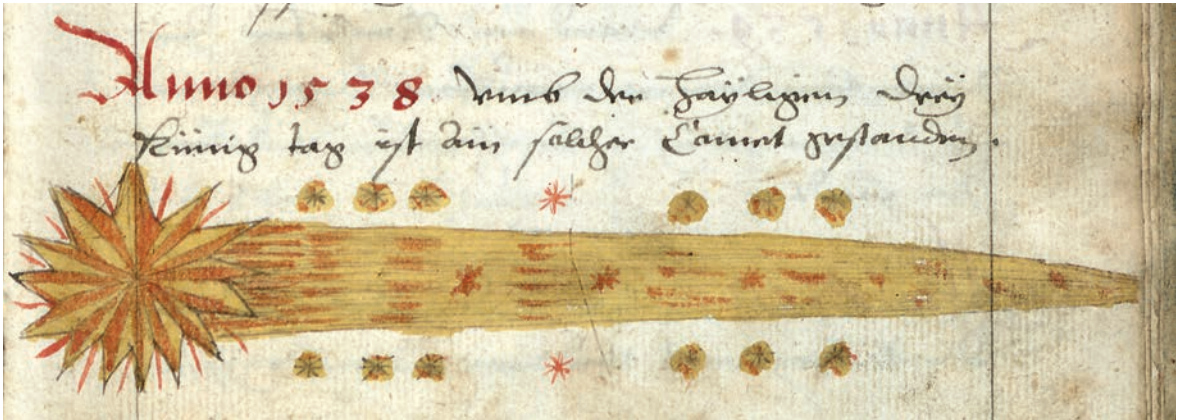 Anno 1538 vmb der hayligen dreÿ
Künig tag ist ain solcher Comet gestanden.